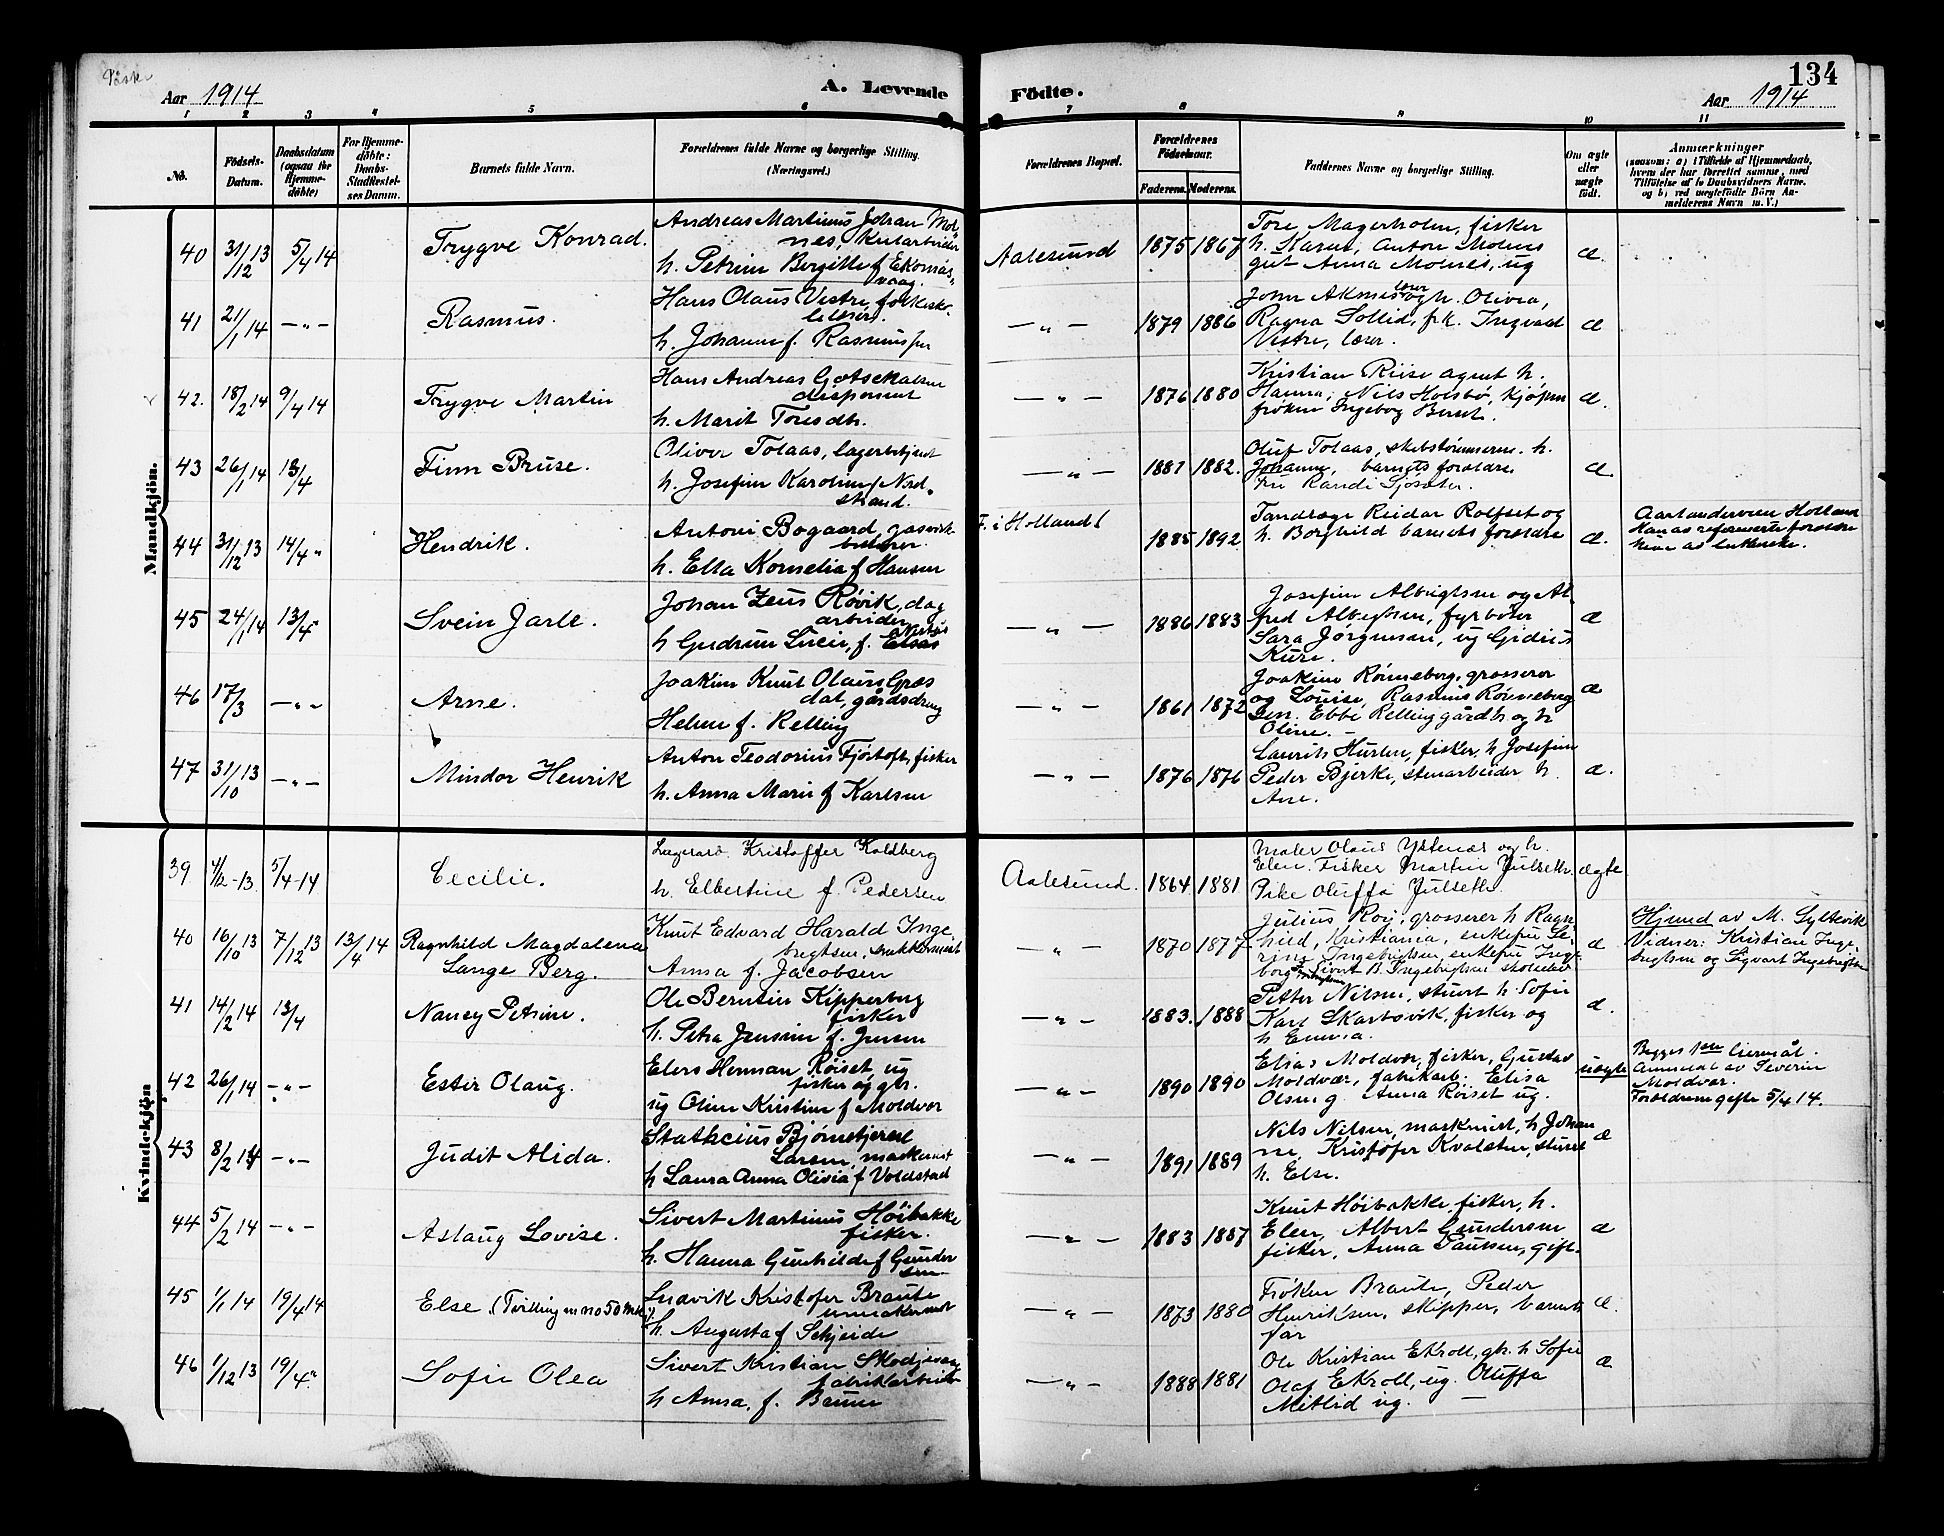 Aar 1914
A. Levende
Födte.
134
Aar 1914
1 2 3 4 5 6 7 8 9 10 11
No.
Födsels-
Datum.
Daabsdatum
(ogsaa for
Hjemme-
döbte)
For Hjemme-
döbte:
Daabs-
Stadfestel-
ses Datum.
Barnets fulde Navn.
Forældrenes fulde Navne og borgerlige Stilling.
(Næringsvei.)
Forældrenes Bopæl.
Forældrenes
Födselsaar.
Faderens. Moderens.
Faddernes Navne og borgerlige Stilling.
Om ægte
eller
uægte
födt.
Anmærkninger
(saasom: a) i Tilfælde af Hjemmedaab,
hvem der har forrettet samme, med
Tilföielse af to Daabsvidners Navne,
og b) ved uægtefödte Börn An-
melderens Navn m. V.)
Mandkjön.
40 31/12 13 5/4 14 Trygve Konrad.
Andreas Martinus Johan Mol-
nes, kularbeider
h. Petrine Bergitte f Ekornås-
vaag.
Aalesund 1875 1867
Tore Magerholm, fisker
h. Karen, Anton Molnes
gut Anna Molnes, ug
æ.
41 21/1 14 —„— Rasmus.
Hans Olaus Vestre, folkesko-
lelærer.
h. Johanne f. Rasmussen
—„— 1879 1886
John Aknes lærer og h. Olivia,
Ragna Sollid, frk. Ingvald
Vestre, lærer.
æ
42. 18/2 14 9/4 14 Trygve Martin
Hans Andreas Gotschalsen
disponent
h. Marit Toresdtr.
—„— 1876 1880
Kristian Riise agent h.
Hanna, Nils Holsbø, kjøpm
frøken Ingeborg
æ.
43 26/1 14 13/4 Finn Bruse.
Oliver Tolaas, lagerbetjent
h. Josefine Karoline f Nord-
strand.
—„— 1881 1882.
Oluf Tolaas, skibstømmerm. h.
Johanne, barnets forældre
Fru Randi Sjøseter.
æ.
44 31/12 13 14/4 „ Hendrik.
Antoni Bogaard, gasverk-
h. Ella Kornelia f Hansen
F. i Holland 1885 1892
Tandlæge Reidar Rolfset og
h. Borghild barnets forældre
æ.
Holland
Han av reformerte foreldre
hun av lutherske.
45 24/1 14 13/4 „ Svein Jarle.
Johan Zeus Røvik, dag
arbeider
h Gudrun Lucie, f.
—„— 1886 1883
Josefine Albrigtsen og Al-
fred Albrigtsen, fyrbøter
Sara Jørgensen, ug Gidius
Kure.
æ
46 17/3 —„— Arne.
Joakim Knut Olaus Græs
dal, gårdsdreng
Helene f. Relling
—„— 1861 1872
Joakim Rønneberg, grosserer
og Louise, Rasmus Rønneberg
sen. Ebbe Relling gårdbr og h
Oline. —
æ
47 31/10 13 —„— Mindor Henrik
Anton Teodorius Fjørtoft, fisker
h. Anna Marie f Karlsen
—„— 1876 1876
Laurits Huslen, fisker, h Josefine
Peder Bjerke, stenarbeider h.
Ane.
æ.
Kvindekjön
39 4/12-13. 5/4-14 Cecilie.
Lagerarb. Kristoffer Koldberg
h. Elbertine f. Pedersen
Aalesund. 1864 1881
Maler Olaus Ystenæs og h.
Elen. Fisker Martin Julseth.
Pike Oluffa Julseth.
ægte
40 16/10 13 7/12 13 13/4 14 Ragnhild Magdalena
Lange Berg.
Knut Edvard Harald Inge
brigtsen,
Anna f. Jacobsen
—„— 1870 1877
Julius Roy, grosserer h Ragn
hild, Kristiania, enkefru Se-
rine Ingebrigtsen, enkefru Inge-
borg Sivert B. Ingebrigtsen
æ
Hjmd av M. Syltevik
Vidner: Kristian Inge-
brigtsen og Sigvart Ingebrigtsen
41 14/2 14 13/4 Nancy Petrine.
Ole Berntin Kipperberg
fisker
h. Petra Jensine f. Jensen
—„— 1883. 1888
Petter Nilsen, stuert h Sofie
Karl Skartsvik, fisker og
h Emma.
æ.
42 26/1 14 —„— Ester Olaug.
Elers Herman Røiset, ug
fisker og gbr.
ug Oline Kristine f Moldvær
—„— 1890 1890
Elias Moldvær, fisker, Gustav
Moldvær, fabrikarb. Elisa
Olsen g. Anna Røiset ug.
uægte
Begges 1ste leiermål.
Anmeldt av Severin
Moldvær.
Foreldrene gifte 5/4 14.
43 8/2 14 —„— Judit Alida.
Statheius Bjørnetjeren
Larsen, maskinist
h Laura Anna Olivia f Voldstad
—„— 1891 1889
Nils Nilsen, maskinist, h Johan
ne, Kristofer Kvalsten, stuert
h. Else.
æ
44 5/2 14 —„— Aslaug Lovise.
Sivert Martinus Høibakke
fisker.
h. Hanna Gunhilde f Gunder
sen
—„— 1883 1887
Knut Høibakke, fisker, h.
Elen, Albert Gundersen
fisker, Anna Paulsen, gift.
æ
45 1/1 14 19/4 14 Else (Tvilling m no 50 mk)
Ludvik Kristofer Braute
urmakermest
h. Augusta f Schjeide
—„— 1873 1880
Frøken Braute, Peder
Henriksen, skipper, barnets
far
æ.
46 1/12 13 19/4 „ Sofie Olea
Sivert Kristian Skodjevaag
fabrikarbeider
h Anna, f. Brune
—„— 1888 1881
Ole Kristian Ekroll, gbr. h Sofie
Olaf Ekroll, ug. Oluffa
Mittlid ug. —
æ